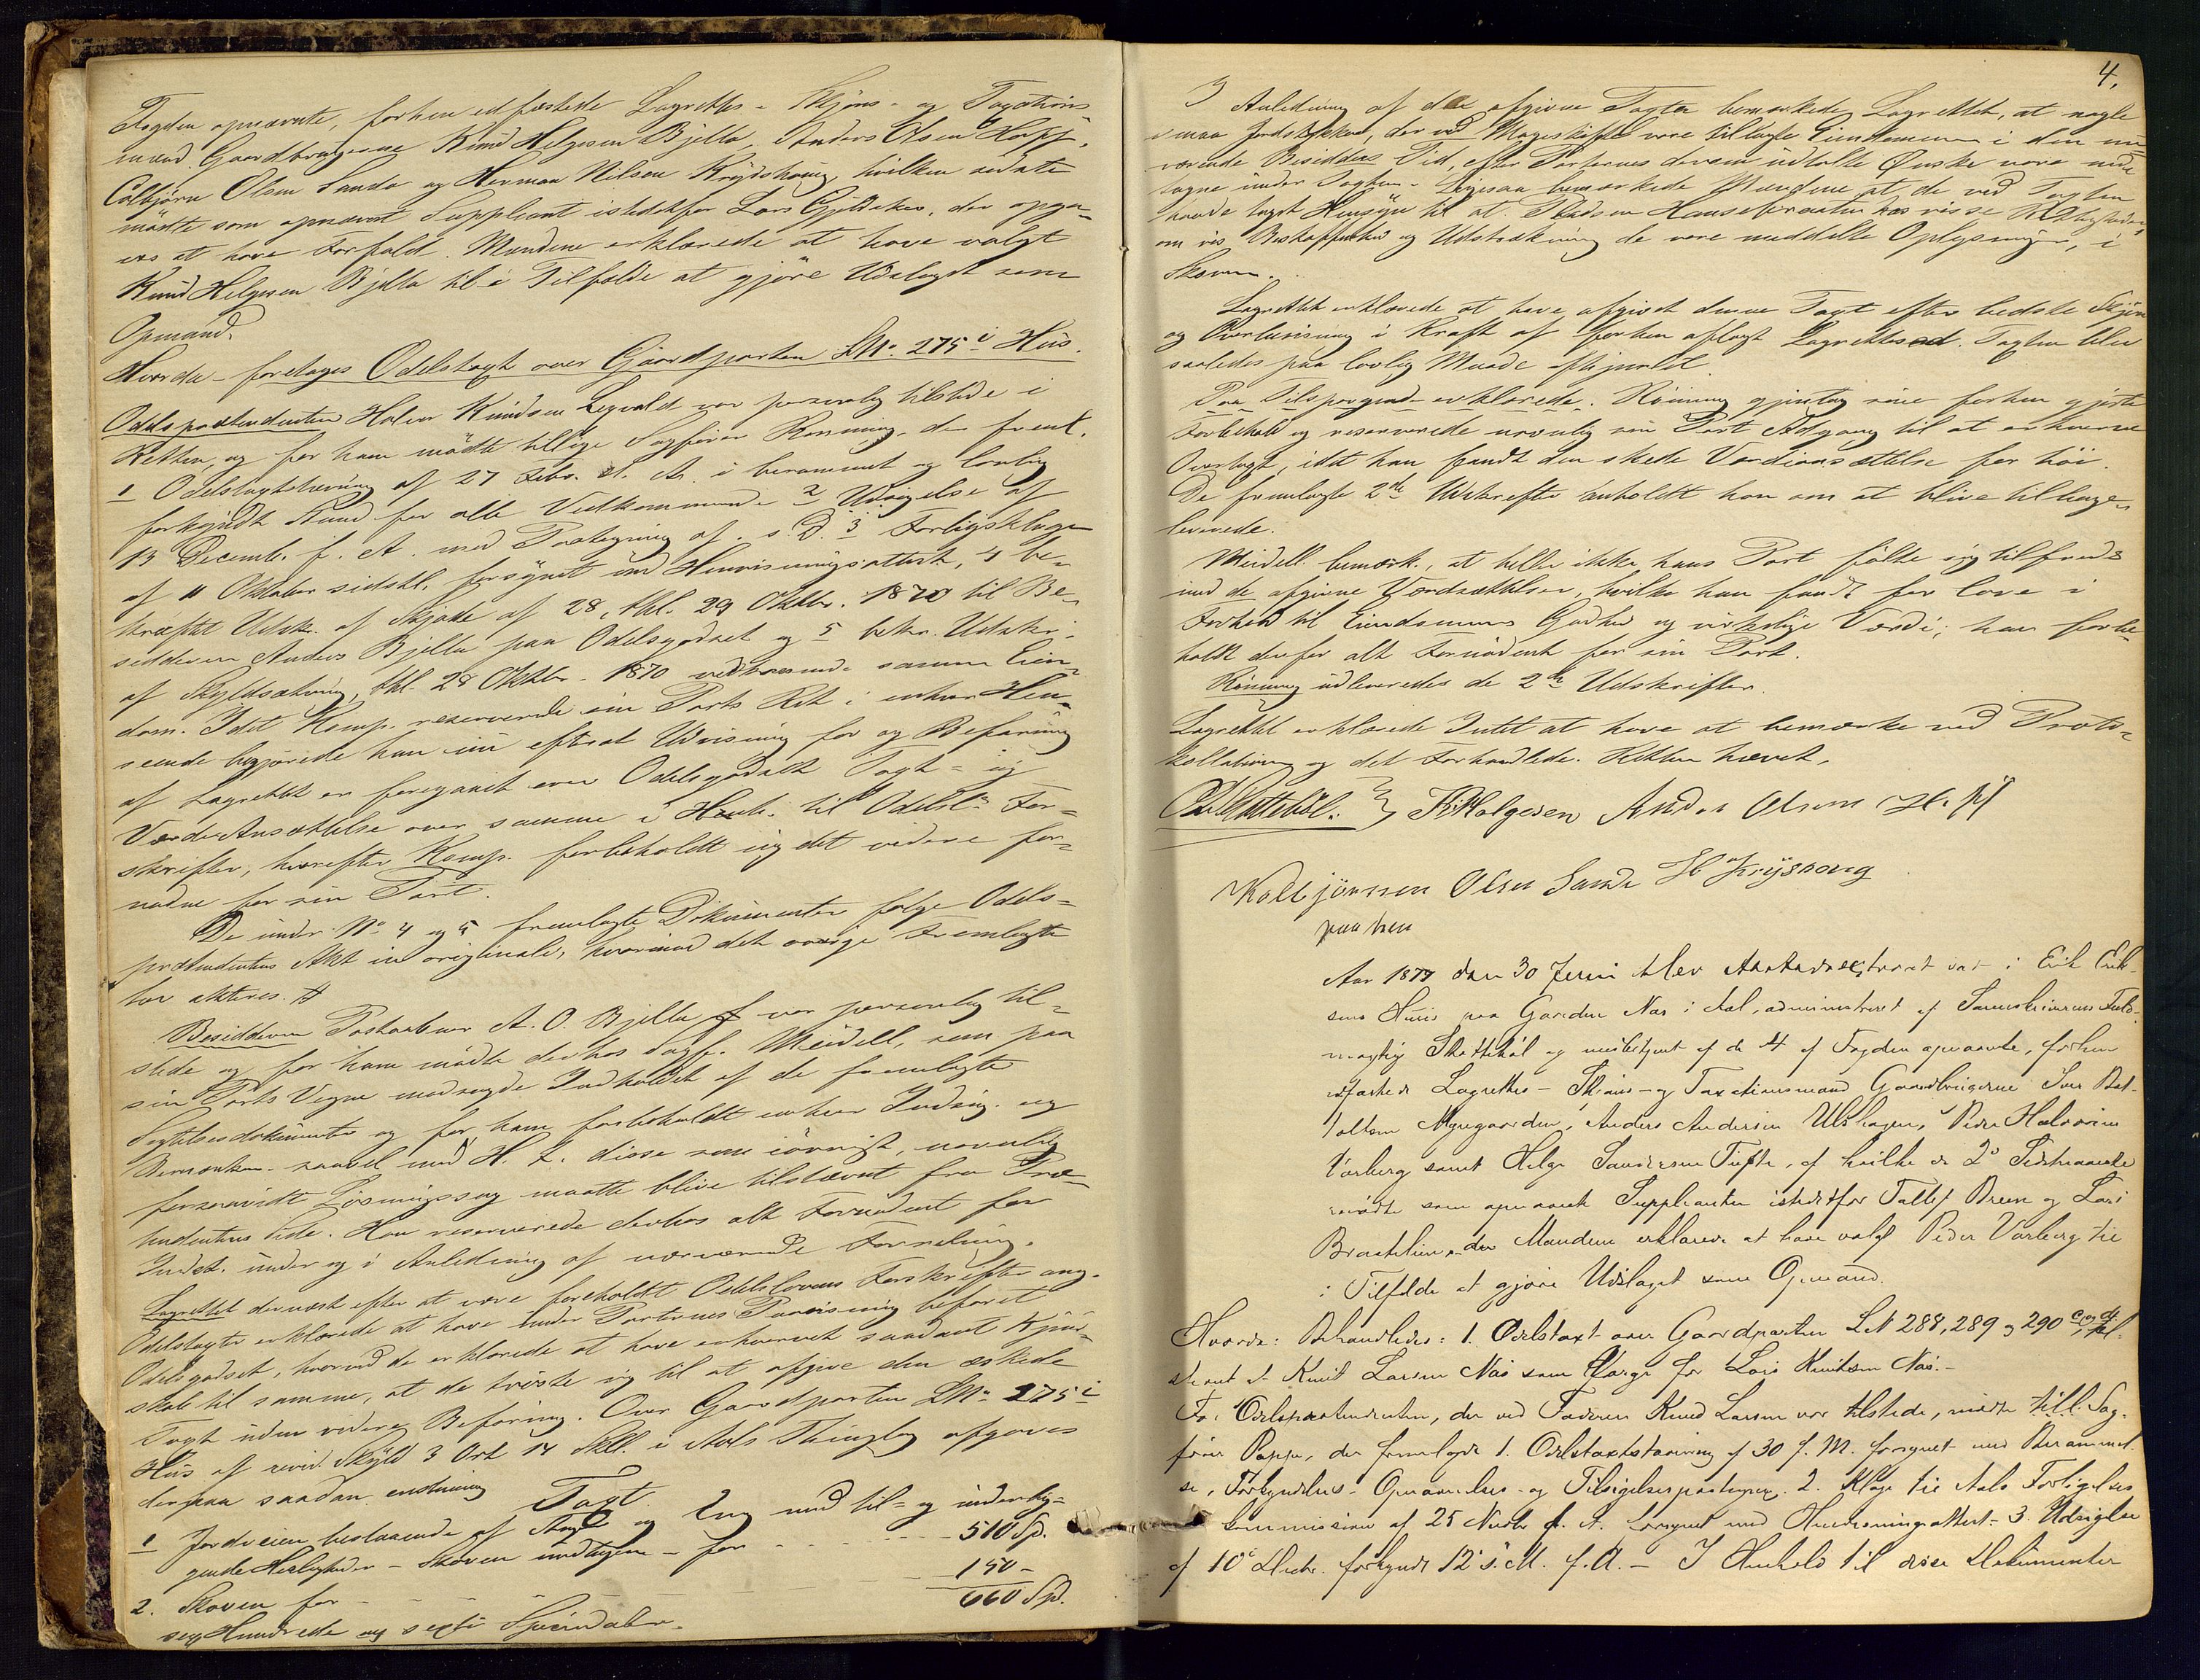 Fogden opnævnte, forhen edfæstede Lagrettes- Skjøns- og Taxations
mænd Gaardbrugerne Knud Helgesen Bjella, Anders Olsen Hoff,
Colbjørn Olsen Sando og Herman Nilsen Krydshoug, hvilken sidste
mødte som opnævnt Suppleant istedetfor Lars Gjeldaker, der opga-
ves at have Forfald. Mændene erklærede at have valgt
Knud Helgesen Bjella til i Tilfælde at gjøre Udslaget som
Opmand.
Hvorda - foretages Odelstaxt over Gaardparten LNo 275 i Hus.
Odelsprætendenten Halvor Knudsen Legvold var personlig tilstede i
Retten, og for ham mødte tillige Sagfører Rønning, der freml.
1 Odelstaxtstevning af 27 Febr. d. A. i berammet og lovlig
forkyndt Stand for alle Vedkommende 2 Udsigelse af
13 Decemb. f. A. med Paategning af s. D. 3 Forligsklage
af 11 Oktober sidstl. forsynet med Henvisningsattest, 4 be-
kræftet Udskr. af Skjøde af 28, thl. 29 Oktbr. 1870 til Be-
sidderen Anders Bjella paa Odelsgodset og 5 bekr. Udskr.
af Skyldsætning, thl. 28 Oktbr. 1870 vedkommende samme Eien-
dom. Idet Komp. reserverede sin Parts Ret i enhver Hen-
seende begjærede han nu efterat Udvisning for og Befaring
af Lagrettet er foregaaet over Odelsgodset Taxt- og
Værdi Ansættelse over samme i Henh. til Odelsl.s For-
skrifter, hvorefter Komp. forbeholdt sig det videre for-
nødne for sin Part.
De under No 4 og 5 fremlagte Dokumenter følge Odels-
prætendentens Akt in originali, hvorimod det øvrige Fremlagte
her akteres.
Besidderen Postaabner A. O. Bjella var personlig til-
stede og for ham mødte derhos Sagf. Meidell, som paa
sin Parts Vegne modsagde Indholdet af de fremlagte
Søgtelsesdokumenter og for ham forbeholdt enhver Indsig. og
Bemærkn. saavel med H. t. disse som iøvrigt, navnlig
forsaavidt Løsningssag maatte blive tilstævnt fra Præ-
tendentens Side. Han reserverede derhos alt Fornødent for
Indst. under og i Anledning af nærværende Forretning.
Lagrettet dernæst efter at være foreholdt Odelslovens Forskrifter ang.
Odelstaxter erklærede at have under Parternes Paavisning befaret
Odelsgodset, hvorved de erklærede at have erhvervet saadant Kjend-
skab til samme, at de trøste sig til at afgive den æskede
Taxt uden videre Befaring. Over Gaardparten LNo 275 i
Hus af revid. Skyld 3 Ort 14 Skll. i Aals Thinglag afgaves
derpaa saadan enstemmig
Taxt.
1 Jordveien bestaaende af Ager og Eng med til- og underlig-
gende Herligheder - Skoven undtagen - for - - - 510 Sp.
2. Skoven for - - - 150 -
660 Sp.
sex Hundrede og sexti Speciedaler.
4.
I Anledning af den afgivne Taxter bemærkede Lagrettet, at nogle
smaa Jordstykker, der ved Mageskifte vare tillagte Eiendommen i den nu-
værende Besidders Tid, efter Parternes derom udtalte Ønske vare ind-
tagne under Taxten. Ligesaa bemærkede Mændene at de ved Taxten
havde taget Hensyn til at Madsen Hansebraaten har visse Rettigheder,
om hvis Beskaffenhed og Udstrækning de vare meddelte Oplysninger, i
Skoven.
Lagrettet erklærede at have afgivet denne Taxt efter bedste Skjøn
og Overbevisning i Kraft af forhen aflagt Lagrettesed. Taxten blev
saaledes paa lovlig Maade afhjemlet.
Paa Tilspørgend erklærede. Rønning gjentog sine forhen gjorte
Forbehold og reserverede navnlig sin Part Adgang til at erhverve
Overtaxt, idet han fandt den skede Værdiansættelse for høi.
De fremlagte 2de Udskrifter anholdt han om at blive tilbage-
leverede.
Meidell bemærk., at heller ikke hans Part følte sig tilfreds
med de afgivne Værdsættelser, hvilke han fandt for lave i
Forhold til Eiendommens Godhed og virkelige Værdi; han forbe-
holdt derfor alt Fornødent for sin Part.
Rønning udleveredes de 2de Udskrifter.
Lagrettet erklærede Intet at have at bemærke ved Proto-
kollationen og det Forhandlede. Retten hævet.
Skottebøl. K Helgesen Anders Olsen Hoff
Kolbjørnsen Olsen Sando H N Krysshoug
paa pen
Aar 1877 den 30 Juni blev Aastedsextraret sat i Erik Erik-
sens Huus paa Gaarden Næs i Aal, administreret af Sorenskriverens Fuld-
mægtig Skottebøl og meddetjent af de 4 af Fogden opnævnte, forhen
edfæstede Lagrettes- Skjøns- og Taxationsmænd Gaardbrugerne Iver Bot-
tolfsen Myregaarden, Anders Andersen Ulshagen, Peder Halvorsen
Varberg samt Helge Sanderssen Tufte, af hvilke de 2de Sidstnævnte
mødte som opnævnte Suppleanter istedetfor Tollef Breen og Lars
Brattelien, der Mændene erklærede at have valgt Peder Varberg til
i Tilfælde at gjøre Udslaget som Opmand.
Hvorda: Behandledes: 1. Odelstaxt over Gaardparten LN 288, 289 og 290 c og d,
stevnt af Knud Larsen Næs som Værge for Lars Knudsen Næs.-
For Odelsprætendenten, der ved Faderen Knud Larsen var tilstede, mødte till. Sag-
fører Poppe, der fremlagde 1. Odelstaxtstævning af 30 f. M. forsynet med Berammel-
se, Forkyndelses- Opnævnelses- og Tilsigelsespaategn. 2. Klage til Aals Forligelses
kommission af 25 Novbr f. A. forsynet med Henvisningsattest - 3. Udsigelse
af 10de Decbr. forkyndt 12te s. M. f. A. - I Henhold til disse Dokumenter